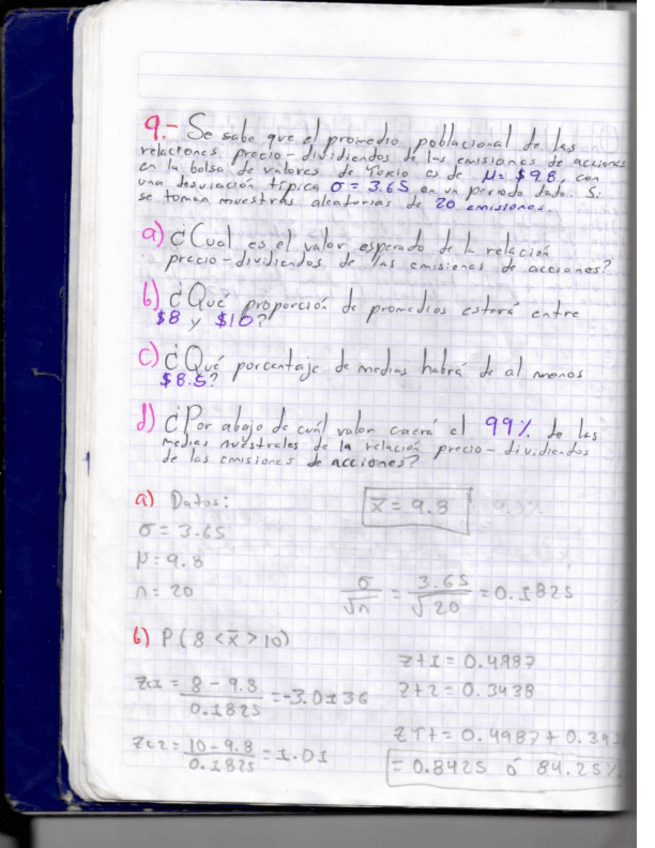 9.- Se sabe que el promedio poblacional de las
relaciones precio-dividendos de las emisiones de acciones
en la bolsa de valores de Tokio es de μ= $9.8, con
una desviación típica σ = 3.65 en un periodo dado. Si
se toman muestras aleatorias de 20 emisiones.
a) ¿Cual es el valor esperado de la relación
precio-dividendos de las emisiones de acciones?
b) ¿Qué proporción de promedios estará entre
$8 y $10?
c) ¿Qué porcentaje de medias habrá de al menos
$8.5?
d) ¿Por abajo de cuál valor caerá el 99% de las
medias muestrales de la relación precio-dividendos
de las emisiones de acciones?
a) Datos:
x̅ = 9.8
σ = 3.65
μ= 9.8
n= 20
σ/√n = 3.65/√20 = 0.1825
b) P(8 < x̅ > 10)
Zt1 = 0.4987
Zt2 = 0.3438
Zc1 = 8 - 9.8/0.1825 = -3.0136
ZTt = 0.4987 + 0.343
Zc2 = 10 - 9.8/0.1825 = 1.01
= 0.8425 ó 84.25%